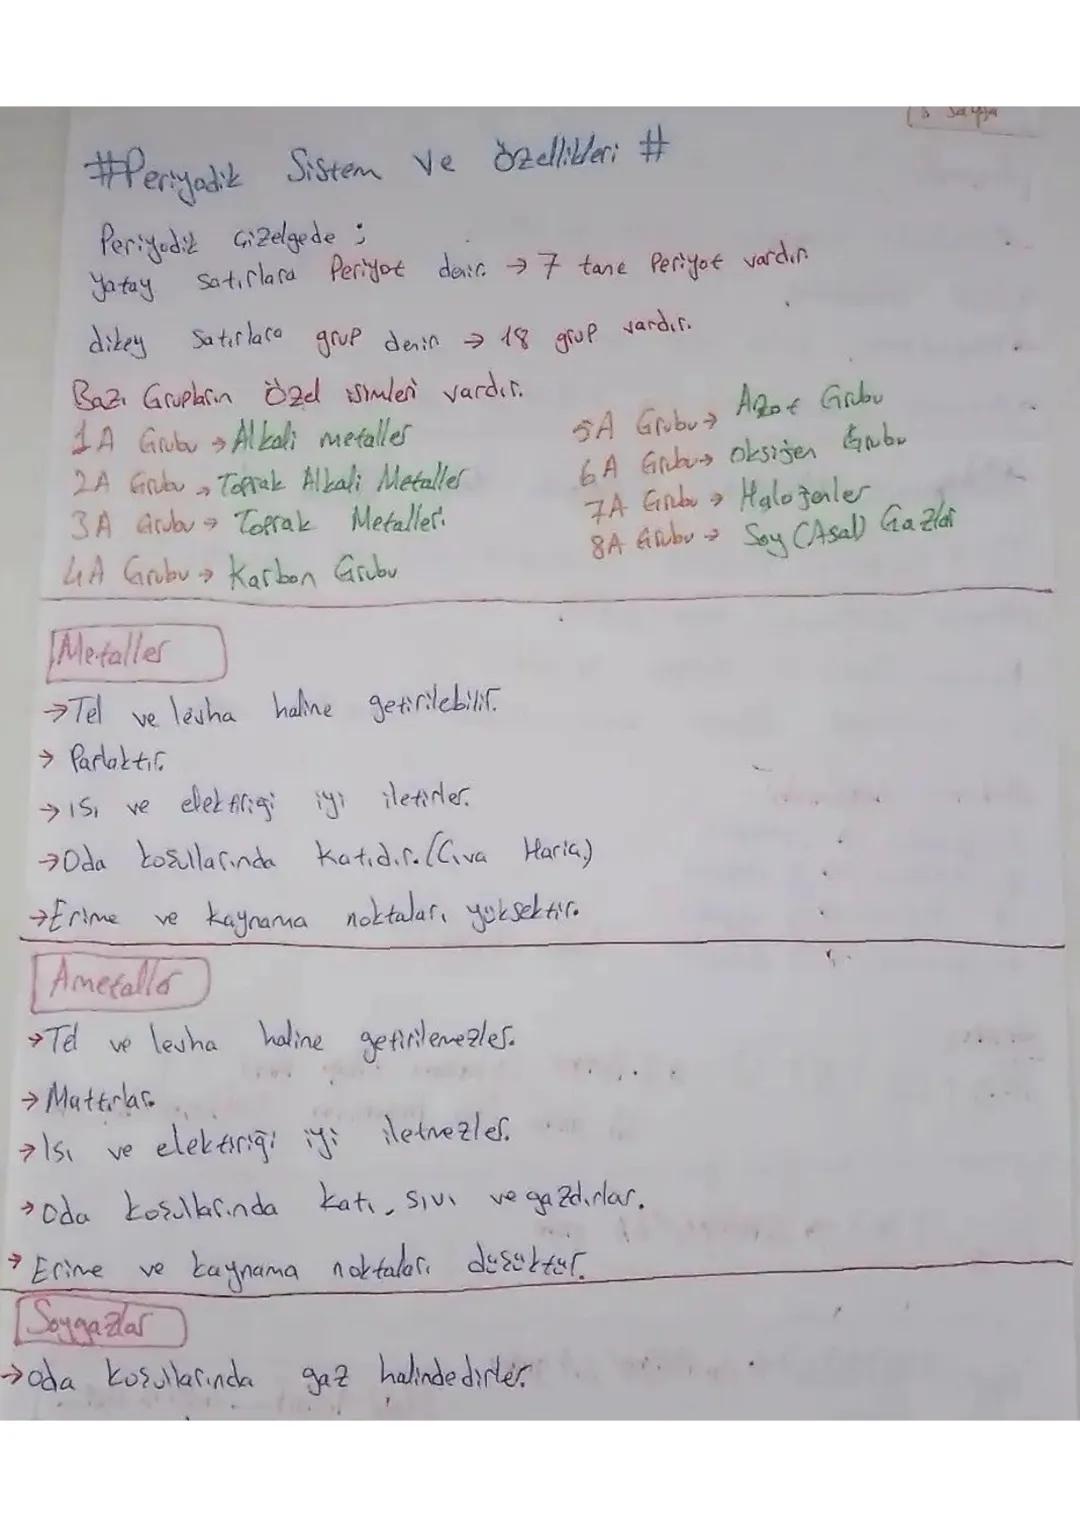 #Periyodik Sistem ve özellikleri #
Periyodik Çizelgede ;
yatay satırlara Periyot denir. → 7 tane Periyot vardır.
dikey Satırlara grup denir → 18 grup vardır.
Bazı Grupların Özel isimleri vardır.
1A Grubu → Alkali metaller
2A Grubu → Toprak Alkali Metaller
3A Grubu → Toprak Metalleri
4A Grubu → Karbon Grubu
5A Grubu → Azot Grubu
6A Grubu → Oksijen Grubu
7A Grubu → Halojenler
8A Grubu → Soy (Asal) Gazlar
Metaller
→ Tel ve levha haline getirilebilir.
→ Parlaktır.
→ ısı ve elektriği iyi iletirler.
→ Oda koşullarında Katıdır. (Cıva Hariç)
→ Erime ve kaynama noktaları yüksektir.
Ametaller
→ Tel ve levha haline getirilemezler.
→ Mattırlar.
→ Isı ve elektiriği iyi iletmezler.
→ Oda koşullarında katı, sıvı ve gazdırlar.
→ Erime ve kaynama noktaları düşüktür.
Soygazlar
→ Oda koşullarında gaz halindedirler.